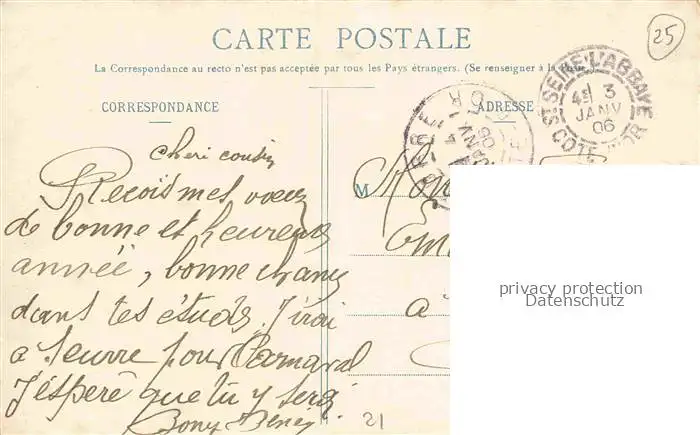 25
CARTE POSTALE
La Correspondance au recto n'est pas acceptée par tous les Pays étrangers. (Se renseigner à la Poste)
CORRESPONDANCE
ADRESSE
ST SEINE-L'ABBAYE
4E 3
JANV
06
COTE D'OR
cheri cousin
Reçois mes voeux
de bonne et heureuse
année, bonne chance
dans tes études. J'irai
a Seurre pour Carnaval
J'éspère que tu y seras.
M
à
privacy protection
Datenschutz
21